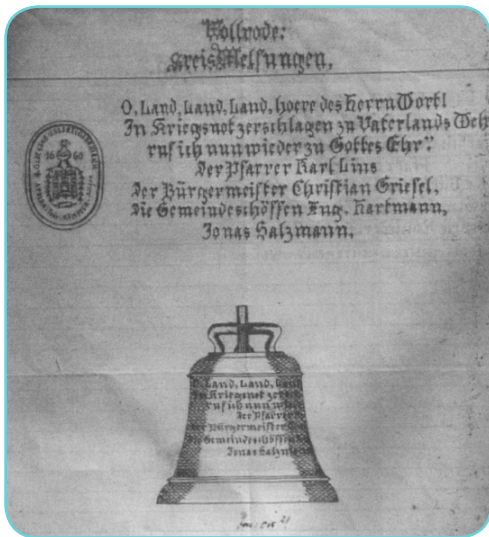 Vollrode:
Kreis Melsungen.
O, Land, Land, Land, hoere des Herrn Wort!
In Kriegsnot zerschlagen zu Vaterlands Weh
ruf ich nun wieder zu Gottes Ehr:
Der Pfarrer Karl Lins
Der Bürgermeister Christian Griesel.
Die Gemeindeschöffen Aug. Hartmann,
Jonas Salzmann.
16 60
O, Land, Land, Land
In Kriegsnot zersch
ruf ich nun w
Der Pfarrer
Der Bürgermeister
Die Gemeindeschöffen
Jonas Salzmann